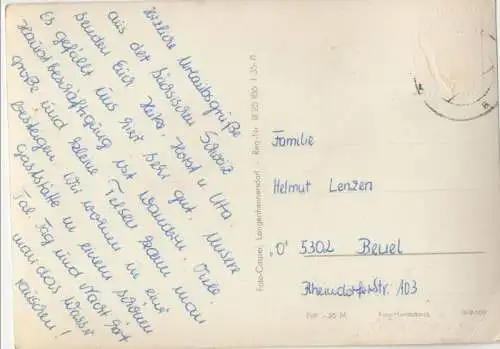 Herzliche Urlaubsgrüße
aus der Sächsischen Schweiz
senden Euch Heiko, Horst u. Uta.
Es gefällt uns hier sehr gut. Unsere
Hauptbeschäftigung ist Wandern. Viele
große und kleine Felsen kann man
besteigen. Wir wohnen in einer
Gaststätte in einem schönen
Tal. Tag und Nacht hört
man das Wasser
rauschen!
Foto-Casper, Langenhennersdorf · Reg.-Nr.
Familie
Helmut Lenzen
„O“ 5302 Beuel
Rheindorferstr. 103